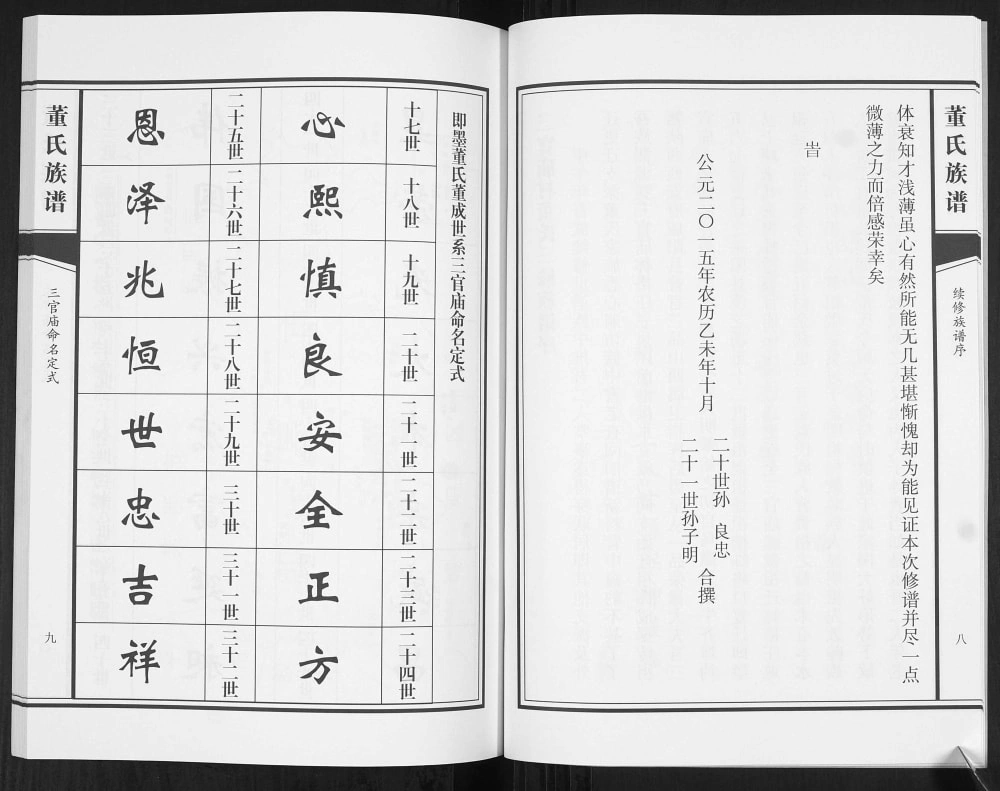 董氏族谱
续修族谱序
八
体衰知才浅薄虽心有然所能无几甚堪惭愧却为能见证本次修谱并尽一点
微薄之力而倍感荣幸矣
旹
公元二〇一五年农历乙未年十月
二十世孙 良忠
二十一世孙子明
合撰
即墨董氏董成世系三官庙命名定式
十七世 十八世 十九世 二十世 二十一世 二十二世 二十三世 二十四世
心 熙 慎 良 安 全 正 方
二十五世 二十六世 二十七世 二十八世 二十九世 三十世 三十一世 三十二世
恩 泽 兆 恒 世 忠 吉 祥
董氏族谱
三官庙命名定式
九